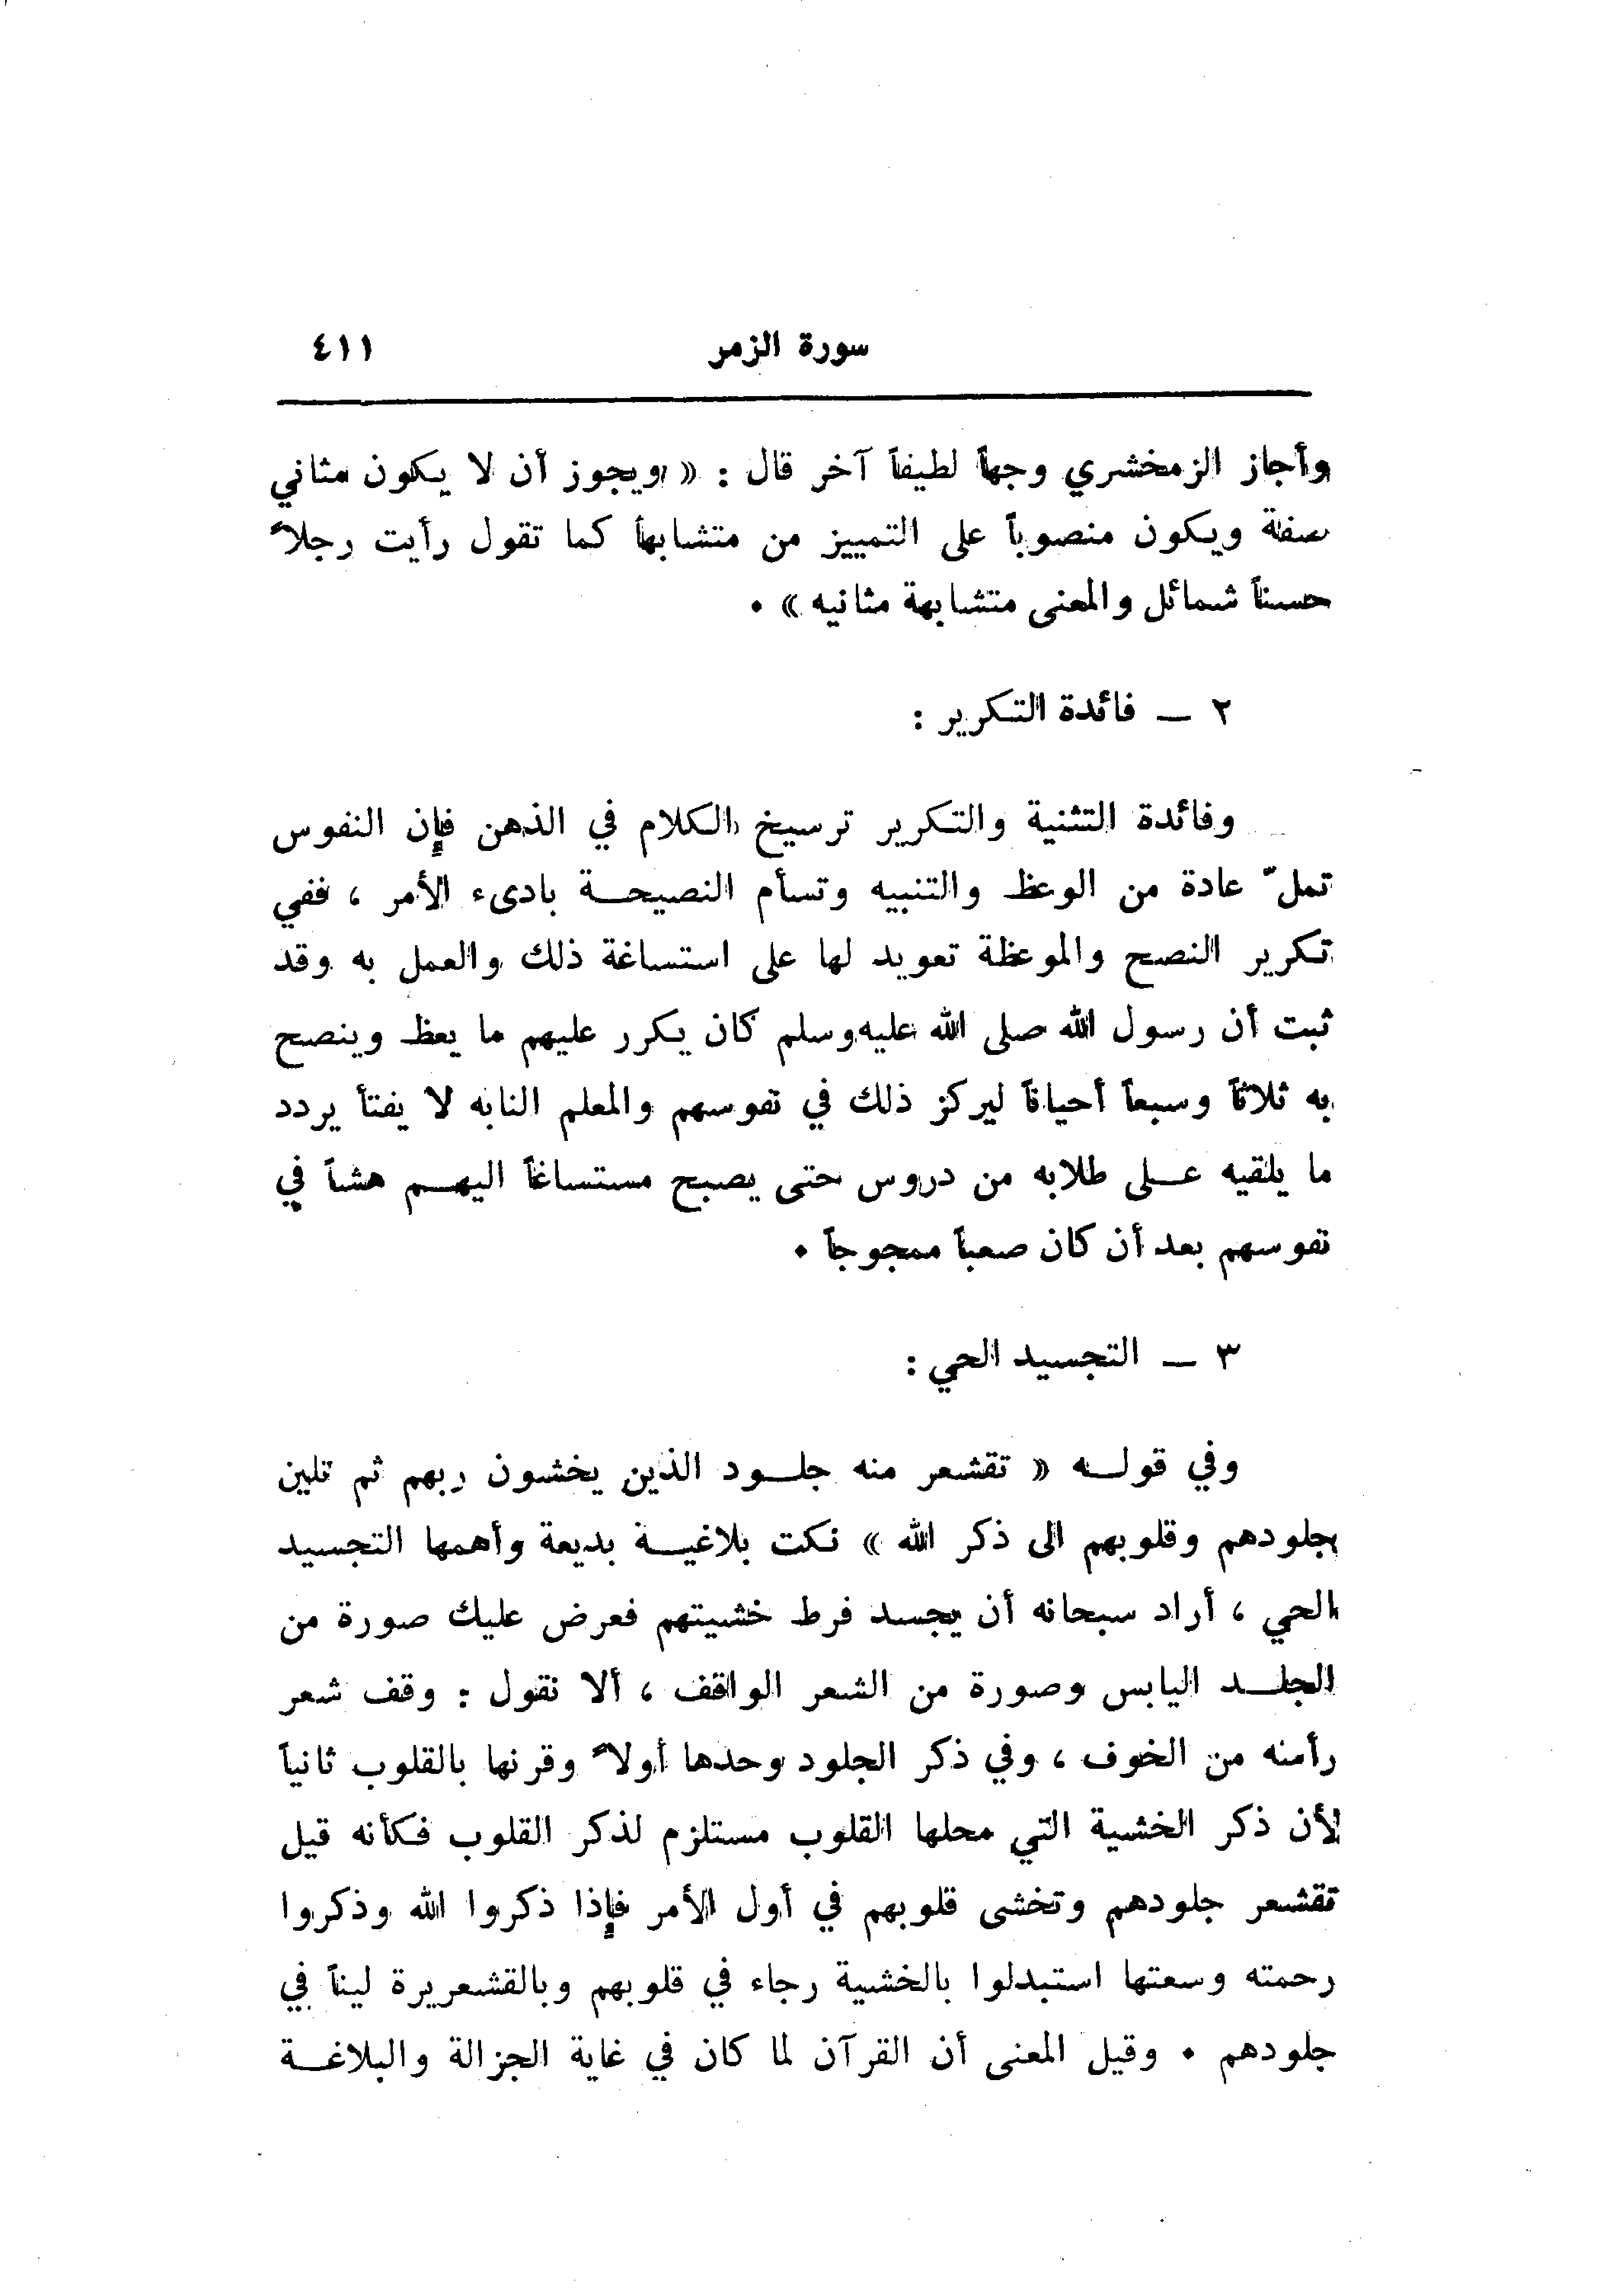 سورة الزمر ٤١١
وأجاز الزمخشري وجهاً لطيفاً آخر قال : « ويجوز أن لا يكون مثاني
صفة ويكون منصوباً على التمييز من متشابهاً كما تقول رأيت رجلاً
حسناً شمائل والمعنى متشابهة مثانيه » ٠
٢ ــ فائدة التكرير :
وفائدة التثنية والتكرير ترسيخ الكلام في الذهن فإن النفوس
تملّ عادة من الوعظ والتنبيه وتسأم النصيحة بادىء الأمر ، ففي
تكرير النصح والموعظة تعويد لها على استساغة ذلك والعمل به وقد
ثبت أن رسول الله صلى الله عليه وسلم كان يكرر عليهم ما يعظ وينصح
به ثلاثاً وسبعاً أحياناً ليركز ذلك في نفوسهم والمعلم النابه لا يفتأ يردد
ما يلقيه على طلابه من دروس حتى يصبح مستساغاً اليهم هشاً في
نفوسهم بعد أن كان صعباً ممجوجاً ٠
٣ ــ التجسيد الحي :
وفي قوله « تقشعر منه جلود الذين يخشون ربهم ثم تلين
جلودهم وقلوبهم الى ذكر الله » نكت بلاغية بديعة وأهمها التجسيد
الحي ، أراد سبحانه أن يجسد فرط خشيتهم فعرض عليك صورة من
الجلد اليابس وصورة من الشعر الواقف ، ألا نقول : وقف شعر
رأسه من الخوف ، وفي ذكر الجلود وحدها أولاً وقرنها بالقلوب ثانياً
لأن ذكر الخشية التي محلها القلوب مستلزم لذكر القلوب فكأنه قيل
تقشعر جلودهم وتخشى قلوبهم في أول الأمر فإذا ذكروا الله وذكروا
رحمته وسعتها استبدلوا بالخشية رجاء في قلوبهم وبالقشعريرة ليناً في
جلودهم ٠ وقيل المعنى أن القرآن لما كان في غاية الجزالة والبلاغة